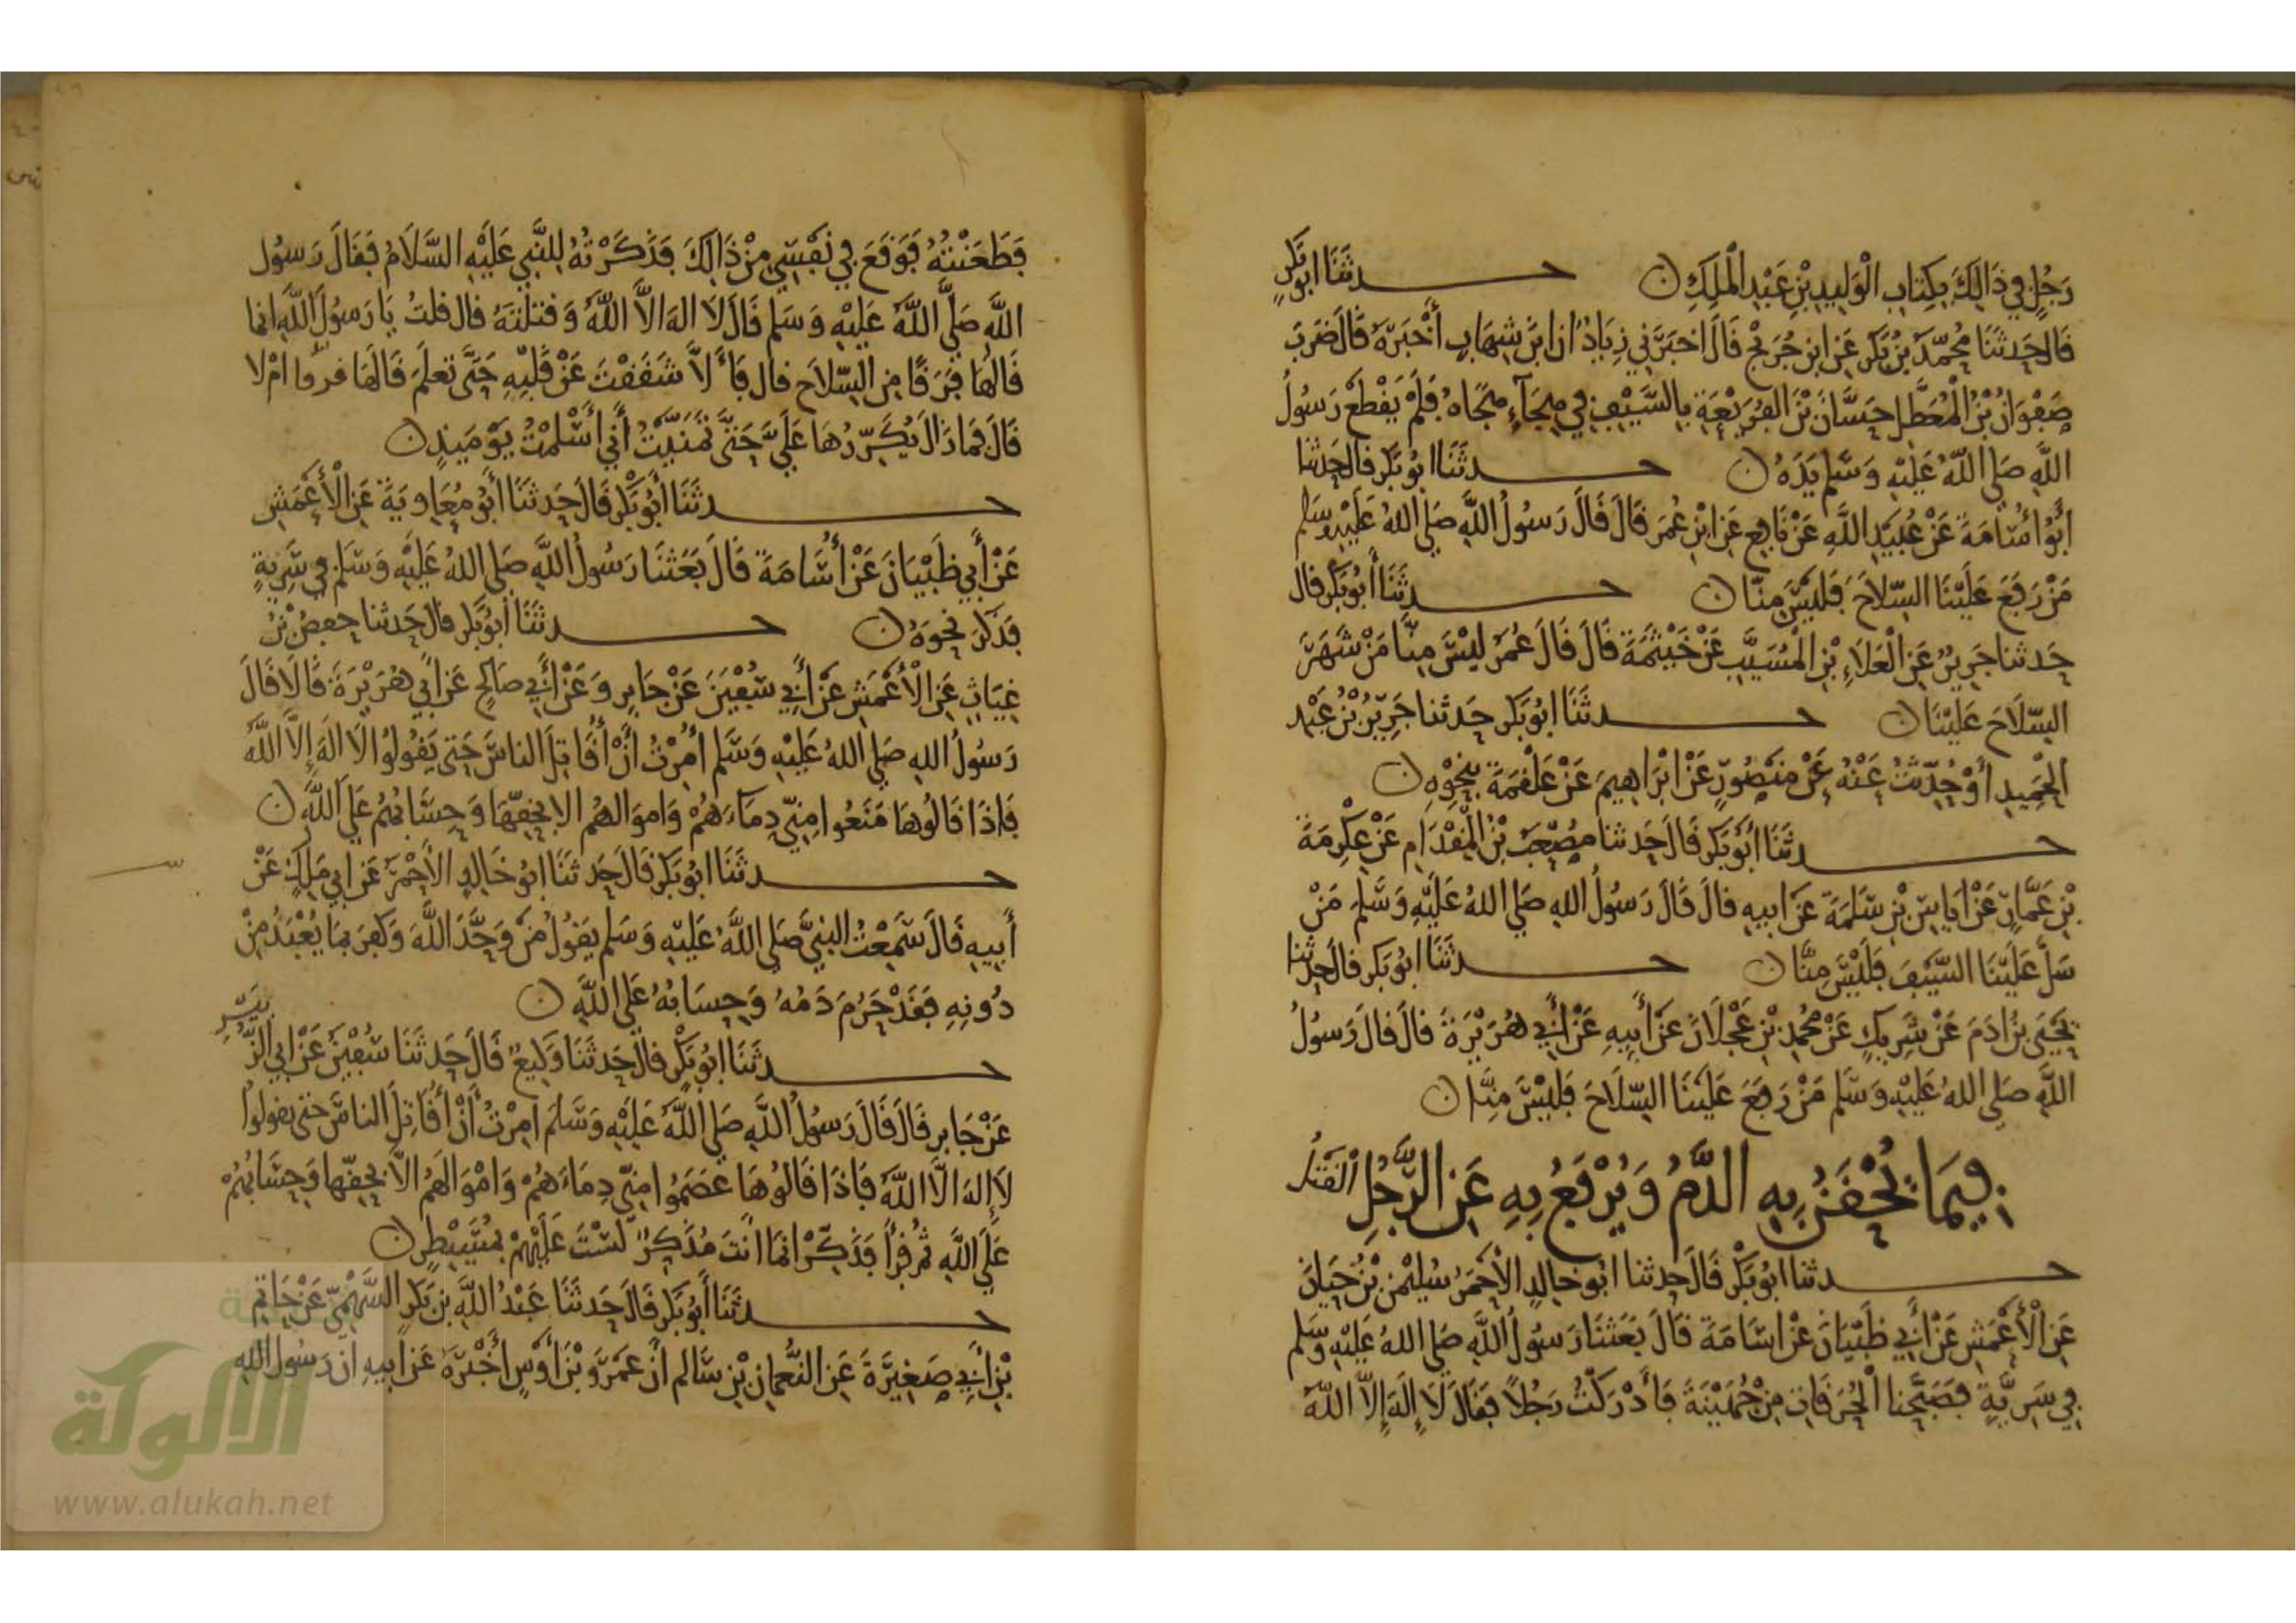 رَجُلٍ في ذَالِكَ بِكِتَابِ الْوَلِيدِ بْنِ عَبْدِ الْمَلِكِ ن حدثَنَا ابو بَكْرٍ
قال حَدثَنَا مُحمّد بْنُ بَكْر عَن ابن جُرَيْج قَالَ اخبَرَني زِيَاد ان ابنَ شِهَابٍ أَخْبَرَهُ قَالَ ضَرَبَ
صَفْوَانُ بْنُ الْمُعَطَّلِ حَسَّانَ بْنَ الفُرَيْعَةِ بِالسَّيْفِ في هِجَآءٍ هَجَاهُ فَلَمْ يَقْطَعْ رَسُولُ
اللَّهِ صَلى اللَّهُ عَلَيْهِ وَسَلم يَدَهُ ن حدثَنَا ابُو بَكر قال حَدثنا
أبُو أُسَامَةَ عَنْ عُبَيْدِ اللَّهِ عَنْ نَافِعٍ عَن ابْنِ عُمَرَ قَالَ قَالَ رَسُولُ اللَّهِ صَلى اللهُ عَلَيْهِ وسَلم
مَنْ رَفَعَ عَلَيْنَا السِّلَاحَ فَلَيْسَ مِنَّا ن حدثَنَا أَبُو بَكر قال
حَدثنا جَرِيرٌ عَن الْعَلَاءِ بْنِ الْمُسَيَّبِ عَنْ خَيْثَمَةَ قَالَ قَالَ عُمَرُ لَيْسَ مِنَّا مَنْ شَهَرَ
السِّلَاحَ عَلَيْنَا ن حدثَنَا ابُو بَكر حَدثنا جَرِيرُ بْنُ عَبْدِ
الْحَمِيدِ أَوْ حُدِّثْتُ عَنْهُ عَنْ مَنْصُورٍ عَنْ ابْرَاهِيمَ عَنْ عَلْقَمَةَ بِنَحْوِهِ ن
حدثَنَا أَبُو بَكر قَالَ حَدثنا مُصْعَبُ بْنُ الْمِقْدَامِ عَنْ عِكْرِمَةَ
بْنِ عَمَّارٍ عَنْ ايَاسِ بْنِ سَلَمَةَ عَن ابِيهِ قالَ قَالَ رَسُولُ اللهِ صَلى اللهُ عَلَيْهِ وَسَلم مَنْ
سَلَّ عَلَيْنَا السَّيْفَ فَلَيْسَ مِنَّا ن حدثَنَا ابُو بَكر قال حَدثنا
يَحْيَى بنُ ادَمَ عَنْ شَرِيكٍ عَنْ مُحمدِ بْنِ عَجْلَانَ عَن أَبِيهِ عَنْ أَبي هُرَيْرَةَ قالَ قالَ رَسُولُ
اللَّهِ صَلى اللهُ عَلَيْهِ وَسَلم مَنْ رَفَعَ عَلَيْنَا السِّلَاحَ فَلَيْسَ مِنَّا ن
فِيمَا يُحْقَنُ بِهِ الدَّمُ وَيُرْفَعُ بِهِ عَنِ الرَّجُلِ الْقَتْلُ
حدثنا ابُو بَكْرٍ قَالَ حَدثنا ابُو خَالِدٍ الأَحْمَرُ سُلَيْمن بْنُ حَيَانَ
عَن الْأَعْمَشِ عَنْ أَبي ظَبْيَانَ عَنْ اسَامَةَ قَالَ بَعَثَنَا رَسُولُ اللَّهِ صَلى اللهُ عَلَيْهِ وَسَلم
فِي سَرِيَّةٍ فَصَبَّحْنَا الْحُرَقَاتِ مِنْ جُهَيْنَةَ فَأَدْرَكْتُ رَجُلاً فَقَالَ لَا إِلَهَ إِلاَّ اللَّهُ
فَطَعَنْتُهُ فَوَقَعَ في نَفْسِي مِنْ ذَالِكَ فَذَكَرْتُهُ لِلنَّبي عَلَيْهِ السَّلَامُ فَقَالَ رَسُول
اللَّهِ صَلَّى اللَّهُ عَلَيْهِ وَسَلم قَالَ لَا اله الاَّ اللَّهُ وَقتلْتَهُ قال قلتُ يَا رَسُولَ اللَّهِ انما
قَالَهَا فَرَقًا مِن السِّلَاحِ قال فَأَلَّا شَقَقْتَ عَنْ قَلْبِهِ حَتَّى تعلَمَ قَالَهَا فرقا امْ لا
قَالَ فَمَا زَالَ يُكَرِّرُهَا عَلَيَّ حَتَّى تَمَنَّيْتُ أَنِّي أَسْلَمْتُ يَوْمَئِذٍ ن
حدثَنَا أَبُو بَكْرٍ قَالَ حَدثَنَا أَبُو مُعَاوِيَةَ عَنِ الْأَعْمَشِ
عَنْ أَبِي ظَبْيَانَ عَنْ أُسَامَةَ قَالَ بَعَثَنَا رَسُولُ اللَّهِ صَلى اللهُ عَلَيْهِ وَسَلم في سَرِيَّةٍ
فَذَكَرَ نَحْوَهُ ن حدثَنَا أَبُو بَكر قالَ حَدثنا حفصُ بْنُ
غِيَاثٍ عَن الْأَعْمَشِ عَنْ أَبي سُفْيَنَ عَنْ جَابِرٍ وَعَنْ أَبي صَالِحٍ عَن أَبي هُرَيْرَةَ قَالَا قَالَ
رَسُولُ اللهِ صَلى اللهُ عَلَيْهِ وَسَلم أُمِرْتُ أَنْ أُقَاتِلَ الناسَ حَتى يَقُولُوا لَا الَهَ إِلاَّ اللَّهُ
فَإِذَا قَالُوهَا مَنَعُوا مِنِّي دِمَاءَهُمْ وَامْوَالهُم الا بِحَقِّهَا وَحِسَابُهُمْ عَلَى اللَّهِ ن
حدثَنَا ابُو بَكر قَالَ حَدثَنَا ابُو خَالِدٍ الأَحْمَرَ عَن ابي مَلِكٍ عَنْ
أَبِيهِ قَالَ سَمِعْتُ النبيَّ صَلى اللَّهُ عَلَيْهِ وَسَلم يَقُولُ مَنْ وَحَّدَ اللَّهَ وَكَفَرَ بمَا يُعْبَدُ مِنْ
دُونِهِ فَقَدْ حَرُمَ دَمُهُ وَحِسَابُهُ عَلَى اللَّهِ ن
حدثَنَا ابُو بَكْرٍ قال حَدثَنَا وَكِيعٌ قَالَ حَدثَنَا سُفْيَنُ عَنْ ابي الزُّبَيْرِ
عَنْ جَابِرٍ قَالَ قَالَ رَسُولُ اللَّهِ صَلى اللَّهُ عَلَيْهِ وَسَلم امِرْتُ أَنْ أُقَاتِلَ الناسَ حتى يقولوا
لَا إِلهَ الَّا اللَّهُ فَإِذَا قَالُوهَا عَصَمُوا مِنّي دِمَاءَهُمْ وَامْوَالَهُمْ الاَّ بِحَقِّهَا وَحِسَابُهُمْ
عَلَى اللَّهِ ثم قرأَ فَذَكِّرْ انمَا انْتَ مُذَكِّرٌ لَسْتَ عَلَيْهِمْ بمُسَيْطِرٍ ن
حدثَنَا أَبُو بَكر قَالَ حَدثَنَا عَبْدُ اللَّهِ بن بَكرٍ السَّهْمِيّ عَنْ حَاتِمِ
بْنِ أَبي صَغِيرَةَ عَنِ النُّعمَانِ بْنِ سَالم أَنَّ عَمْرَو بْنَ أَوْسٍ أَخْبَرَهُ عَن أَبِيهِ ان رَسُول اللهِ
الألوكة
www.alukah.net